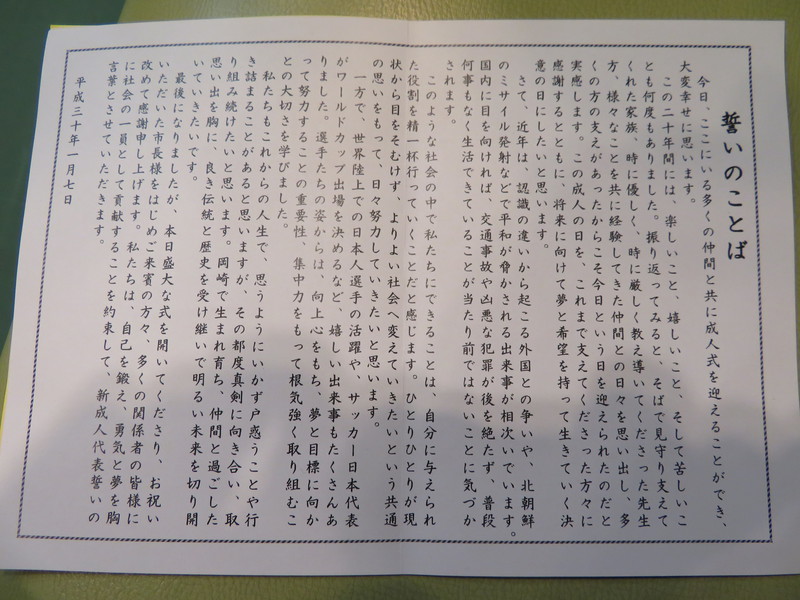 誓いのことば
今日、ここにいる多くの仲間と共に成人式を迎えることができ、
大変幸せに思います。
この二十年間には、楽しいこと、嬉しいこと、そして苦しいこ
とも何度もありました。振り返ってみると、そばで見守り支えて
くれた家族、時に優しく、時に厳しく教え導いてくださった先生
方、様々なことを共に経験してきた仲間との日々を思い出し、多
くの方の支えがあったからこそ今日という日を迎えられたのだと
実感します。この成人の日を、これまで支えてくださった方々に
感謝するとともに、将来に向けて夢と希望を持って生きていく決
意の日にしたいと思います。
さて、近年は、認識の違いから起こる外国との争いや、北朝鮮
のミサイル発射などで平和が脅かされる出来事が相次いでいます。
国内に目を向ければ、交通事故や凶悪な犯罪が後を絶たず、普段
何事もなく生活できていることが当たり前ではないことに気づか
されます。
このような社会の中で私たちにできることは、自分に与えられ
た役割を精一杯行っていくことだと感じます。ひとりひとりが現
状から目をそむけず、よりよい社会へ変えていきたいという共通
の思いをもって、日々努力していきたいと思います。
一方で、世界陸上での日本人選手の活躍や、サッカー日本代表
がワールドカップ出場を決めるなど、嬉しい出来事もたくさんあ
りました。選手たちの姿からは、向上心をもち、夢と目標に向か
って努力することの重要性、集中力をもって根気強く取り組むこ
との大切さを学びました。
私たちもこれからの人生で、思うようにいかず戸惑うことや行
き詰まることがあると思いますが、その都度真剣に向き合い、取
り組み続けたいと思います。岡崎で生まれ育ち、仲間と過ごした
思い出を胸に、良き伝統と歴史を受け継いで明るい未来を切り開
いていきたいです。
最後になりましたが、本日盛大な式を開いてくださり、お祝い
いただいた市長様をはじめご来賓の方々、多くの関係者の皆様に
改めて感謝申し上げます。私たちは、自己を鍛え、勇気と夢を胸
に社会の一員として貢献することを約束して、新成人代表誓いの
言葉とさせていただきます。
平成三十年一月七日